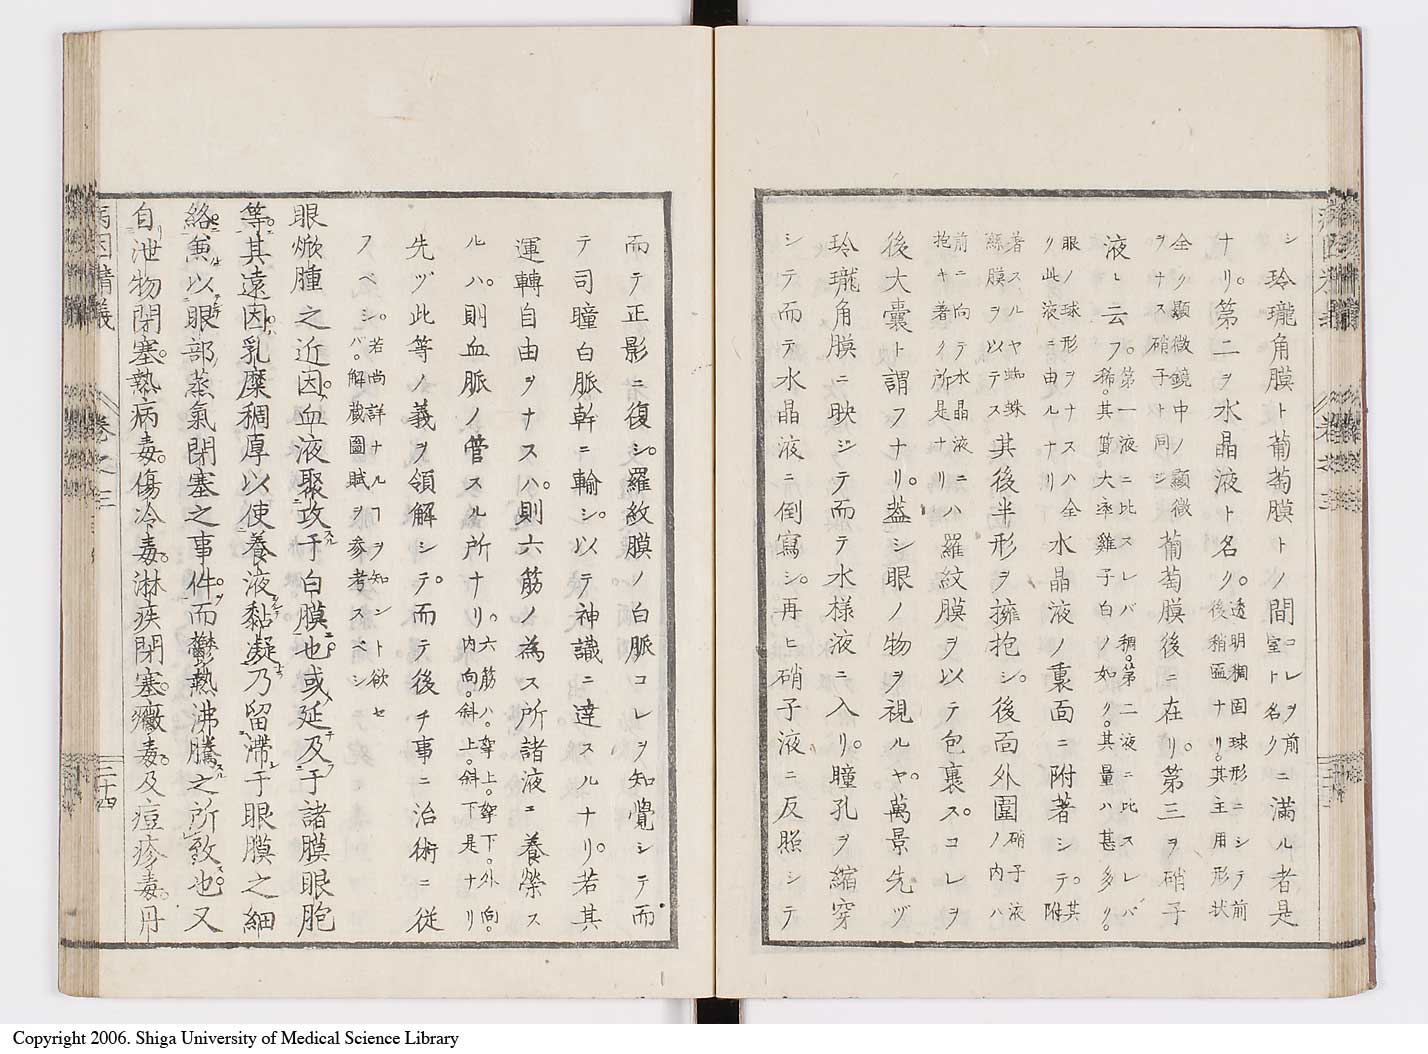 シ玲瓏角膜ト葡萄膜トノ間コレヲ前室ト名クニ滿ル者是
ナリ。第二ヲ水晶液ト名ク。透明稠固球形ニシテ前後稍匾ナリ。其主用形狀
全ク顯微鏡中ノ顯微ヲナス硝子ト同シ葡萄膜後ニ在リ。第三ヲ硝子
液ト云フ。第一液ニ比スレバ稠。第二液ニ比スレバ稀。其質大率雞子白ノ如ク。其量ハ甚多ク。
眼ノ球形ヲナスハ全ク此液ニ由ルナリ水晶液ノ裏面ニ附著シテ。其附
著スルヤ蜘蛛蘇膜ヲ以テス其後半形ヲ擁抱シ。後面外圍硝子液ノ内ハ
前ニ向テ水晶液ニ抱キ著ク所是ナリニハ羅紋膜ヲ以テ包裹ス。コレヲ
後大囊ト謂フナリ。蓋シ眼ノ物ヲ視ルヤ。萬景先ヅ
玲瓏角膜ニ映ジテ而テ水樣液ニ入リ。瞳孔ヲ縮穿
シテ而テ水晶液ニ倒寫シ。再ヒ硝子液ニ反照シテ
而テ正影ニ復シ。羅紋膜ノ白脈コレヲ知覺シテ而
テ司瞳白脈幹ニ輸シ。以テ神識ニ達スルナリ。若其
運轉自由ヲナスハ。則六筋ノ為ス所諸液ヱ養榮ス
ルハ。則血脈ノ管スル所ナリ。六筋ハ。牽上。牽下。外向。内向。斜上。斜下是ナリ
先ヅ此等ノ義ヲ領解シテ。而テ後チ事ニ治術ニ従
フベシ。若尚詳ナルヿヲ知ント欲セバ。解藏圖賦ヲ參考スベシ
眼焮腫之近因。血液聚攻于白膜也。或延及于諸膜眼胞
等。其遠因乳糜稠厚以使養液黏凝乃留滞于眼膜之細
絡。兼以眼部蒸氣閉塞之事件。而鬱熱沸騰之所致也。又
自泄物閉塞。熱病毒。傷冷毒。淋疾閉塞。黴毒。及痘疹毒。丹
病因精義
卷之三
三十四